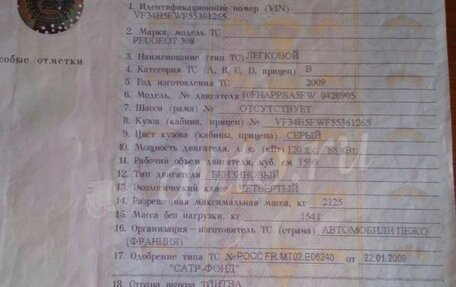 1. Идентификационный номер (VIN)
VF34H5FWF55361265
2. Марка, модель ТС
PEUGEOT 308
собые отметки
3. Наименование (тип ТС) ЛЕГКОВОЙ
4. Категория ТС (A, B, C, D, прицеп) B
5. Год изготовления ТС 2009
6. Модель, № двигателя 10FHAPPSA5FW 0420905
7. Шасси (рама) № ОТСУТСТВУЕТ
8. Кузов (кабина, прицеп) № VF34H5FWF55361265
9. Цвет кузова (кабины, прицепа) СЕРЫЙ
10. Мощность двигателя, л. с. (кВт) 120 л.с. 88 кВт
11. Рабочий объем двигателя, куб. см 1598
12. Тип двигателя БЕНЗИНОВЫЙ
13. Экологический класс ЧЕТВЕРТЫЙ
14. Разрешенная максимальная масса, кг 2125
15. Масса без нагрузки, кг 1541
16. Организация—изготовитель ТС (страна) АВТОМОБИЛИ ПЕЖО
(ФРАНЦИЯ)
17. Одобрение типа ТС № РОСС FR.МТ02.Е06240 от 22.01.2009
"САТР-ФОНД"
18. Страна вывоза ЛИТВА